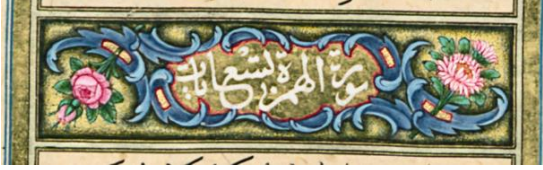 سورة الهمزة تسع آيات